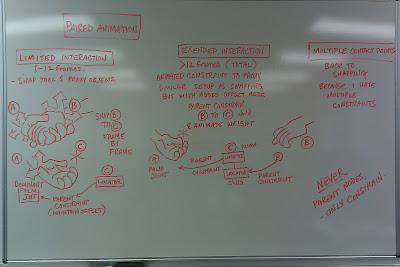 PAIRED ANIMATION
LIMITED INTERACTION
1-12 frames.
- SNAP TOOL & PROXY OBJECTS
A
B
SNAP B
TO C
FRAME
BY
FRAME
A
B
C
C
LOCATOR
DOMINANT
PALM
JNT
PARENT
CONSTRAINT
(MAINTAIN OFFSET)
EXTENDED INTERACTION
>12 frames (TOTAL)
ANIMATED CONSTRAINT TO PROXY
SIMILAR SETUP AS SNAPPING
BUT WITH ADDED OFFSET NODE
PARENT CONSTRAIN
B TO C child
& ANIMATE WEIGHT
A
PALM
JOINT
PARENT
CONSTRAINT
C
LOCATOR
LOCATOR
CHILD
B
PARENT
CONSTRAINT
B
MULTIPLE CONTACT POINTS
BACK TO
SNAPPING
BECAUSE I HATE
MULTIPLE
CONSTRAINTS
NEVER
PARENT NODES.
- ONLY CONSTRAIN.